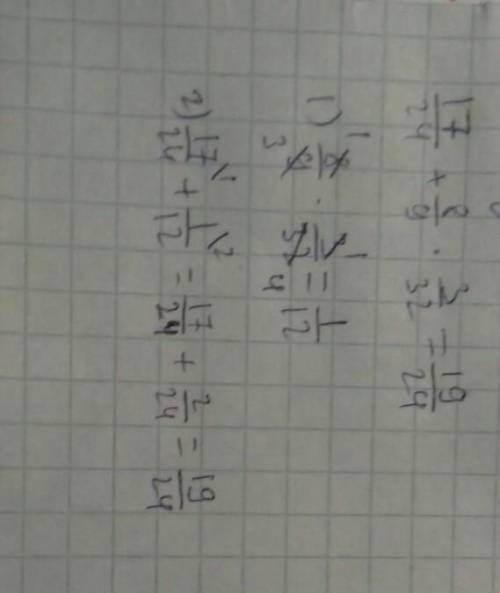 17/24 + 8/9 · 3/32 = 19/24
1) 8/9 · 3/32 = 1/12
2) 17/24 + 1/12 = 17/24 + 2/24 = 19/24